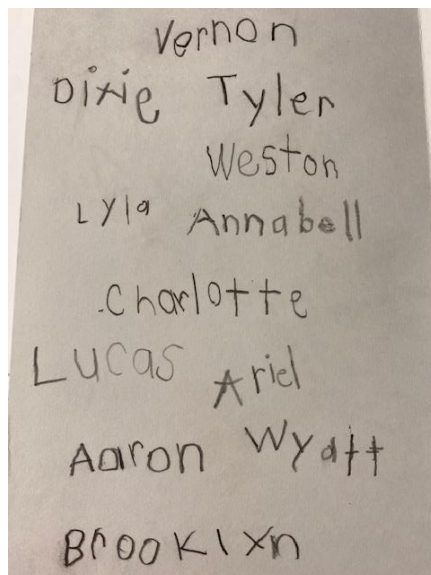 Vernon
Dixie Tyler
Weston
Lyla Annabell
Charlotte
Lucas Ariel
Aaron Wyatt
Brooklxn